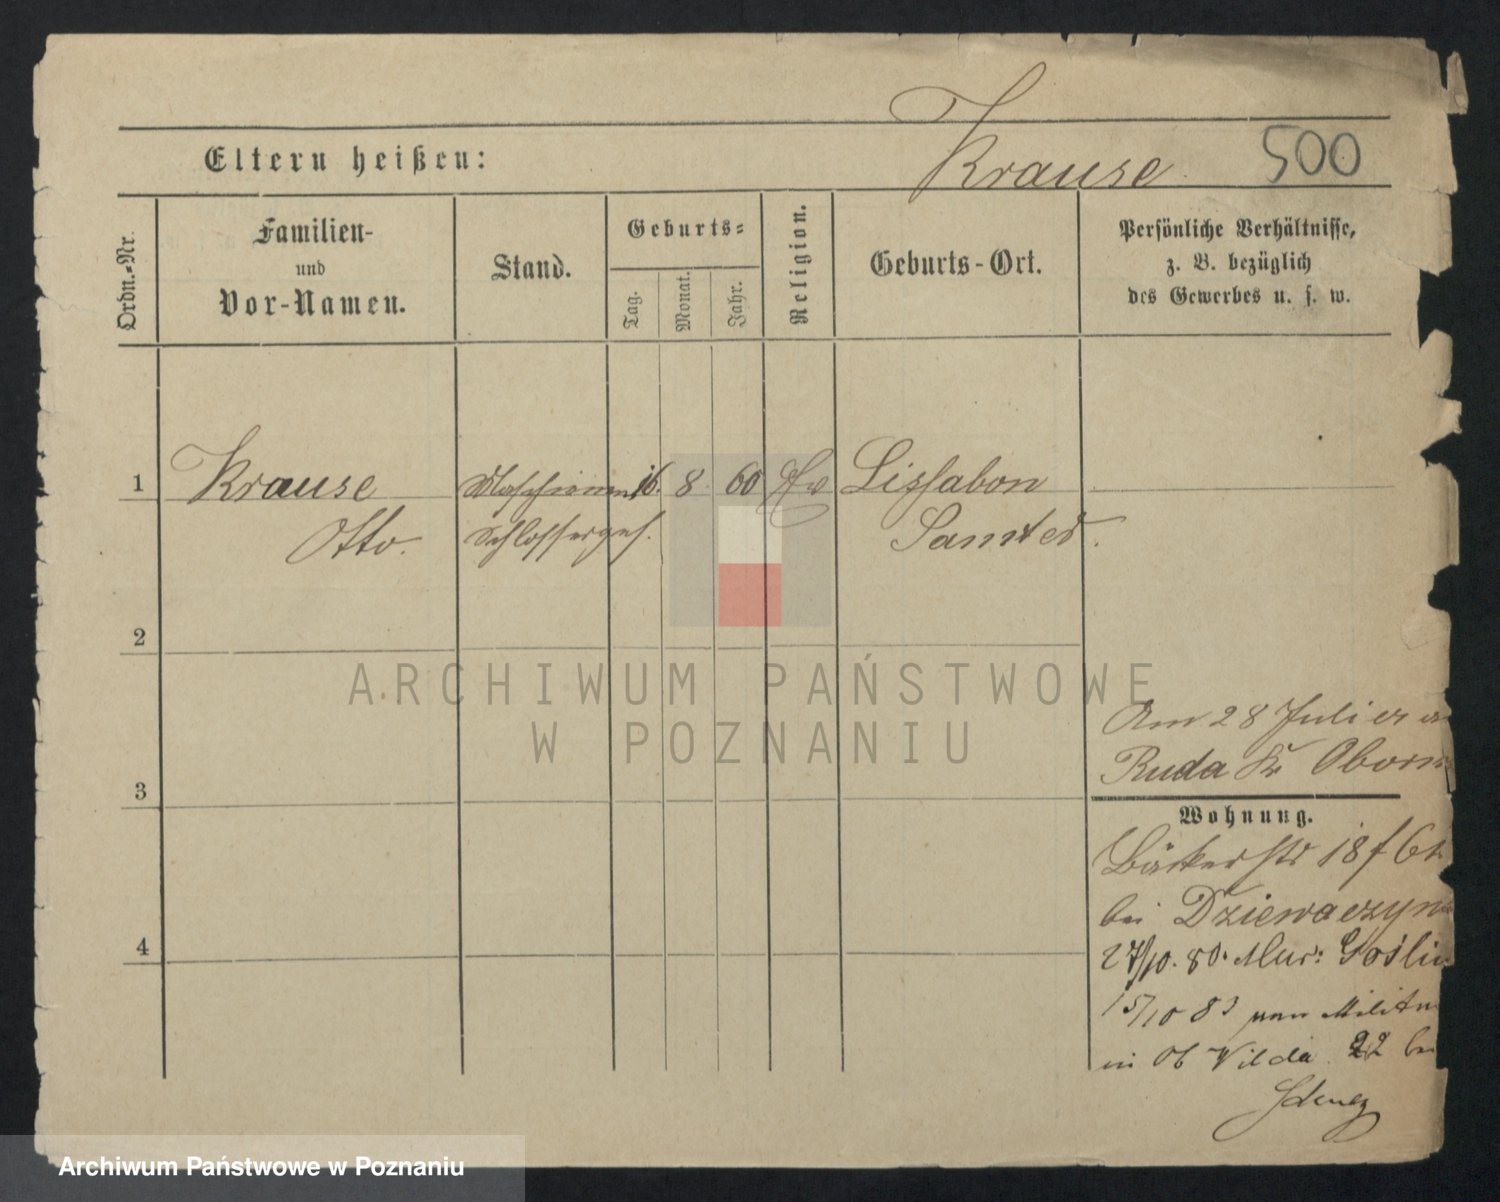 Krause 500
Eltern heißen:
Ordn.-Nr.
Familien-
und
Vor-Namen.
Stand.
Geburts-
Tag.
Monat.
Jahr.
Religion.
Geburts-Ort.
Persönliche Verhältnisse,
z. B. bezüglich
des Gewerbes u. s. w.
1 Krause Maschinen 16. 8 60 Ev Lissabon
Otto. Schlosserges. Samter.
2
3
4
Am 28 Juli er
Ruda Kr Oborn
Wohnung.
Bäckerstr 18
bei Dziewaczyn
27/10. 80. Mur: Goślin
15/10 83 vom Militär
in Ob Wilda 22 bei
ARCHIWUM PAŃSTWOWE
W POZNANIU
Archiwum Państwowe w Poznaniu